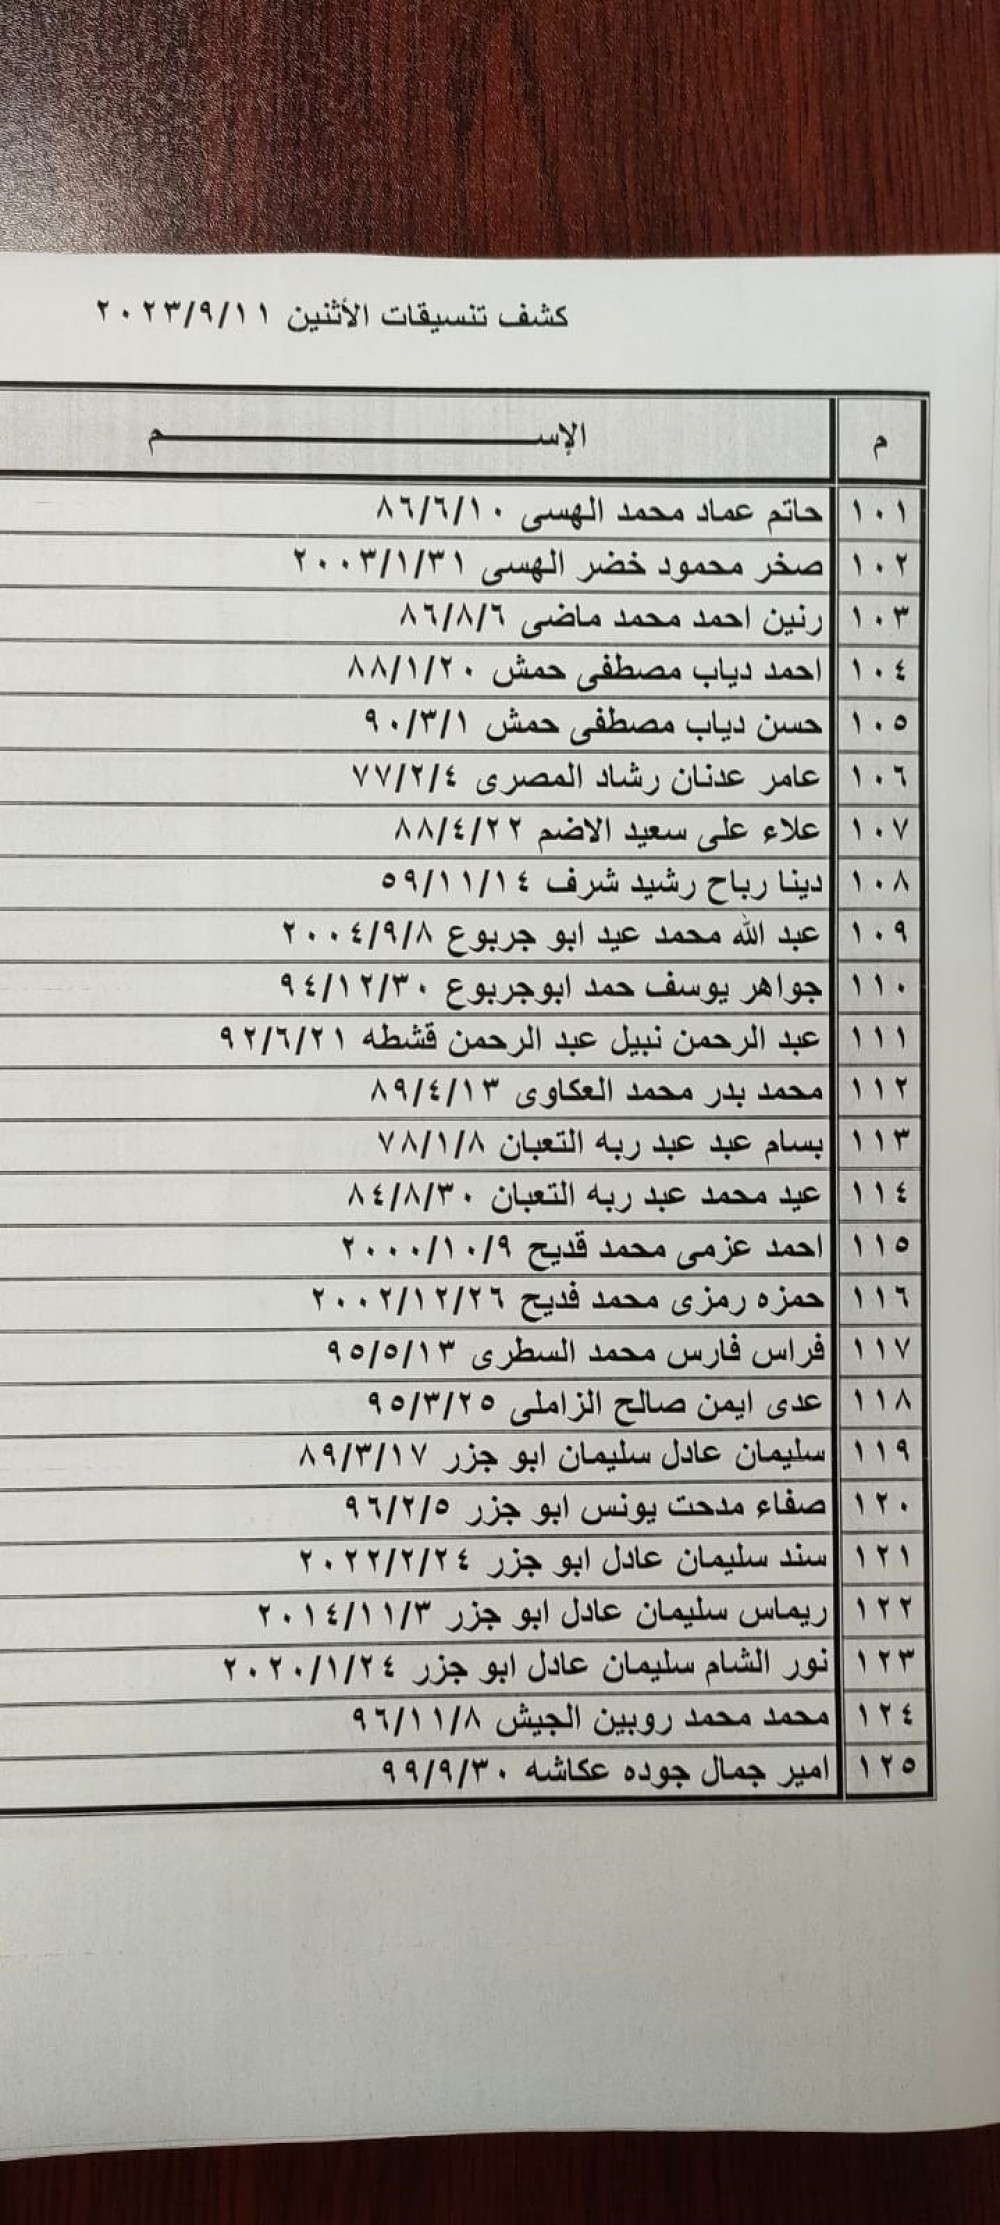 كشف تنسيقات الأثنين ٢٠٢٣/٩/١١
م الإســـــــــــــــــــم
١٠١ حاتم عماد محمد الهسى ٨٦/٦/١٠
١٠٢ صخر محمود خضر الهسى ٢٠٠٣/١/٣١
١٠٣ رنين احمد محمد ماضى ٨٦/٨/٦
١٠٤ احمد دياب مصطفى حمش ٨٨/١/٢٠
١٠٥ حسن دياب مصطفى حمش ٩٠/٣/١
١٠٦ عامر عدنان رشاد المصرى ٧٧/٢/٤
١٠٧ علاء على سعيد الاضم ٨٨/٤/٢٢
١٠٨ دينا رباح رشيد شرف ٥٩/١١/١٤
١٠٩ عبد الله محمد عيد ابو جربوع ٢٠٠٤/٩/٨
١١٠ جواهر يوسف حمد ابوجربوع ٩٤/١٢/٣٠
١١١ عبد الرحمن نبيل عبد الرحمن قشطه ٩٢/٦/٢١
١١٢ محمد بدر محمد العكاوى ٨٩/٤/١٣
١١٣ بسام عبد عبد ربه التعبان ٧٨/١/٨
١١٤ عيد محمد عبد ربه التعبان ٨٤/٨/٣٠
١١٥ احمد عزمى محمد قديح ٢٠٠٠/١٠/٩
١١٦ حمزه رمزى محمد فديح ٢٠٠٢/١٢/٢٦
١١٧ فراس فارس محمد السطرى ٩٥/٥/١٣
١١٨ عدى ايمن صالح الزاملى ٩٥/٣/٢٥
١١٩ سليمان عادل سليمان ابو جزر ٨٩/٣/١٧
١٢٠ صفاء مدحت يونس ابو جزر ٩٦/٢/٥
١٢١ سند سليمان عادل ابو جزر ٢٠٢٢/٢/٢٤
١٢٢ ريماس سليمان عادل ابو جزر ٢٠١٤/١١/٣
١٢٣ نور الشام سليمان عادل ابو جزر ٢٠٢٠/١/٢٤
١٢٤ محمد محمد روبين الجيش ٩٦/١١/٨
١٢٥ امير جمال جوده عكاشه ٩٩/٩/٣٠